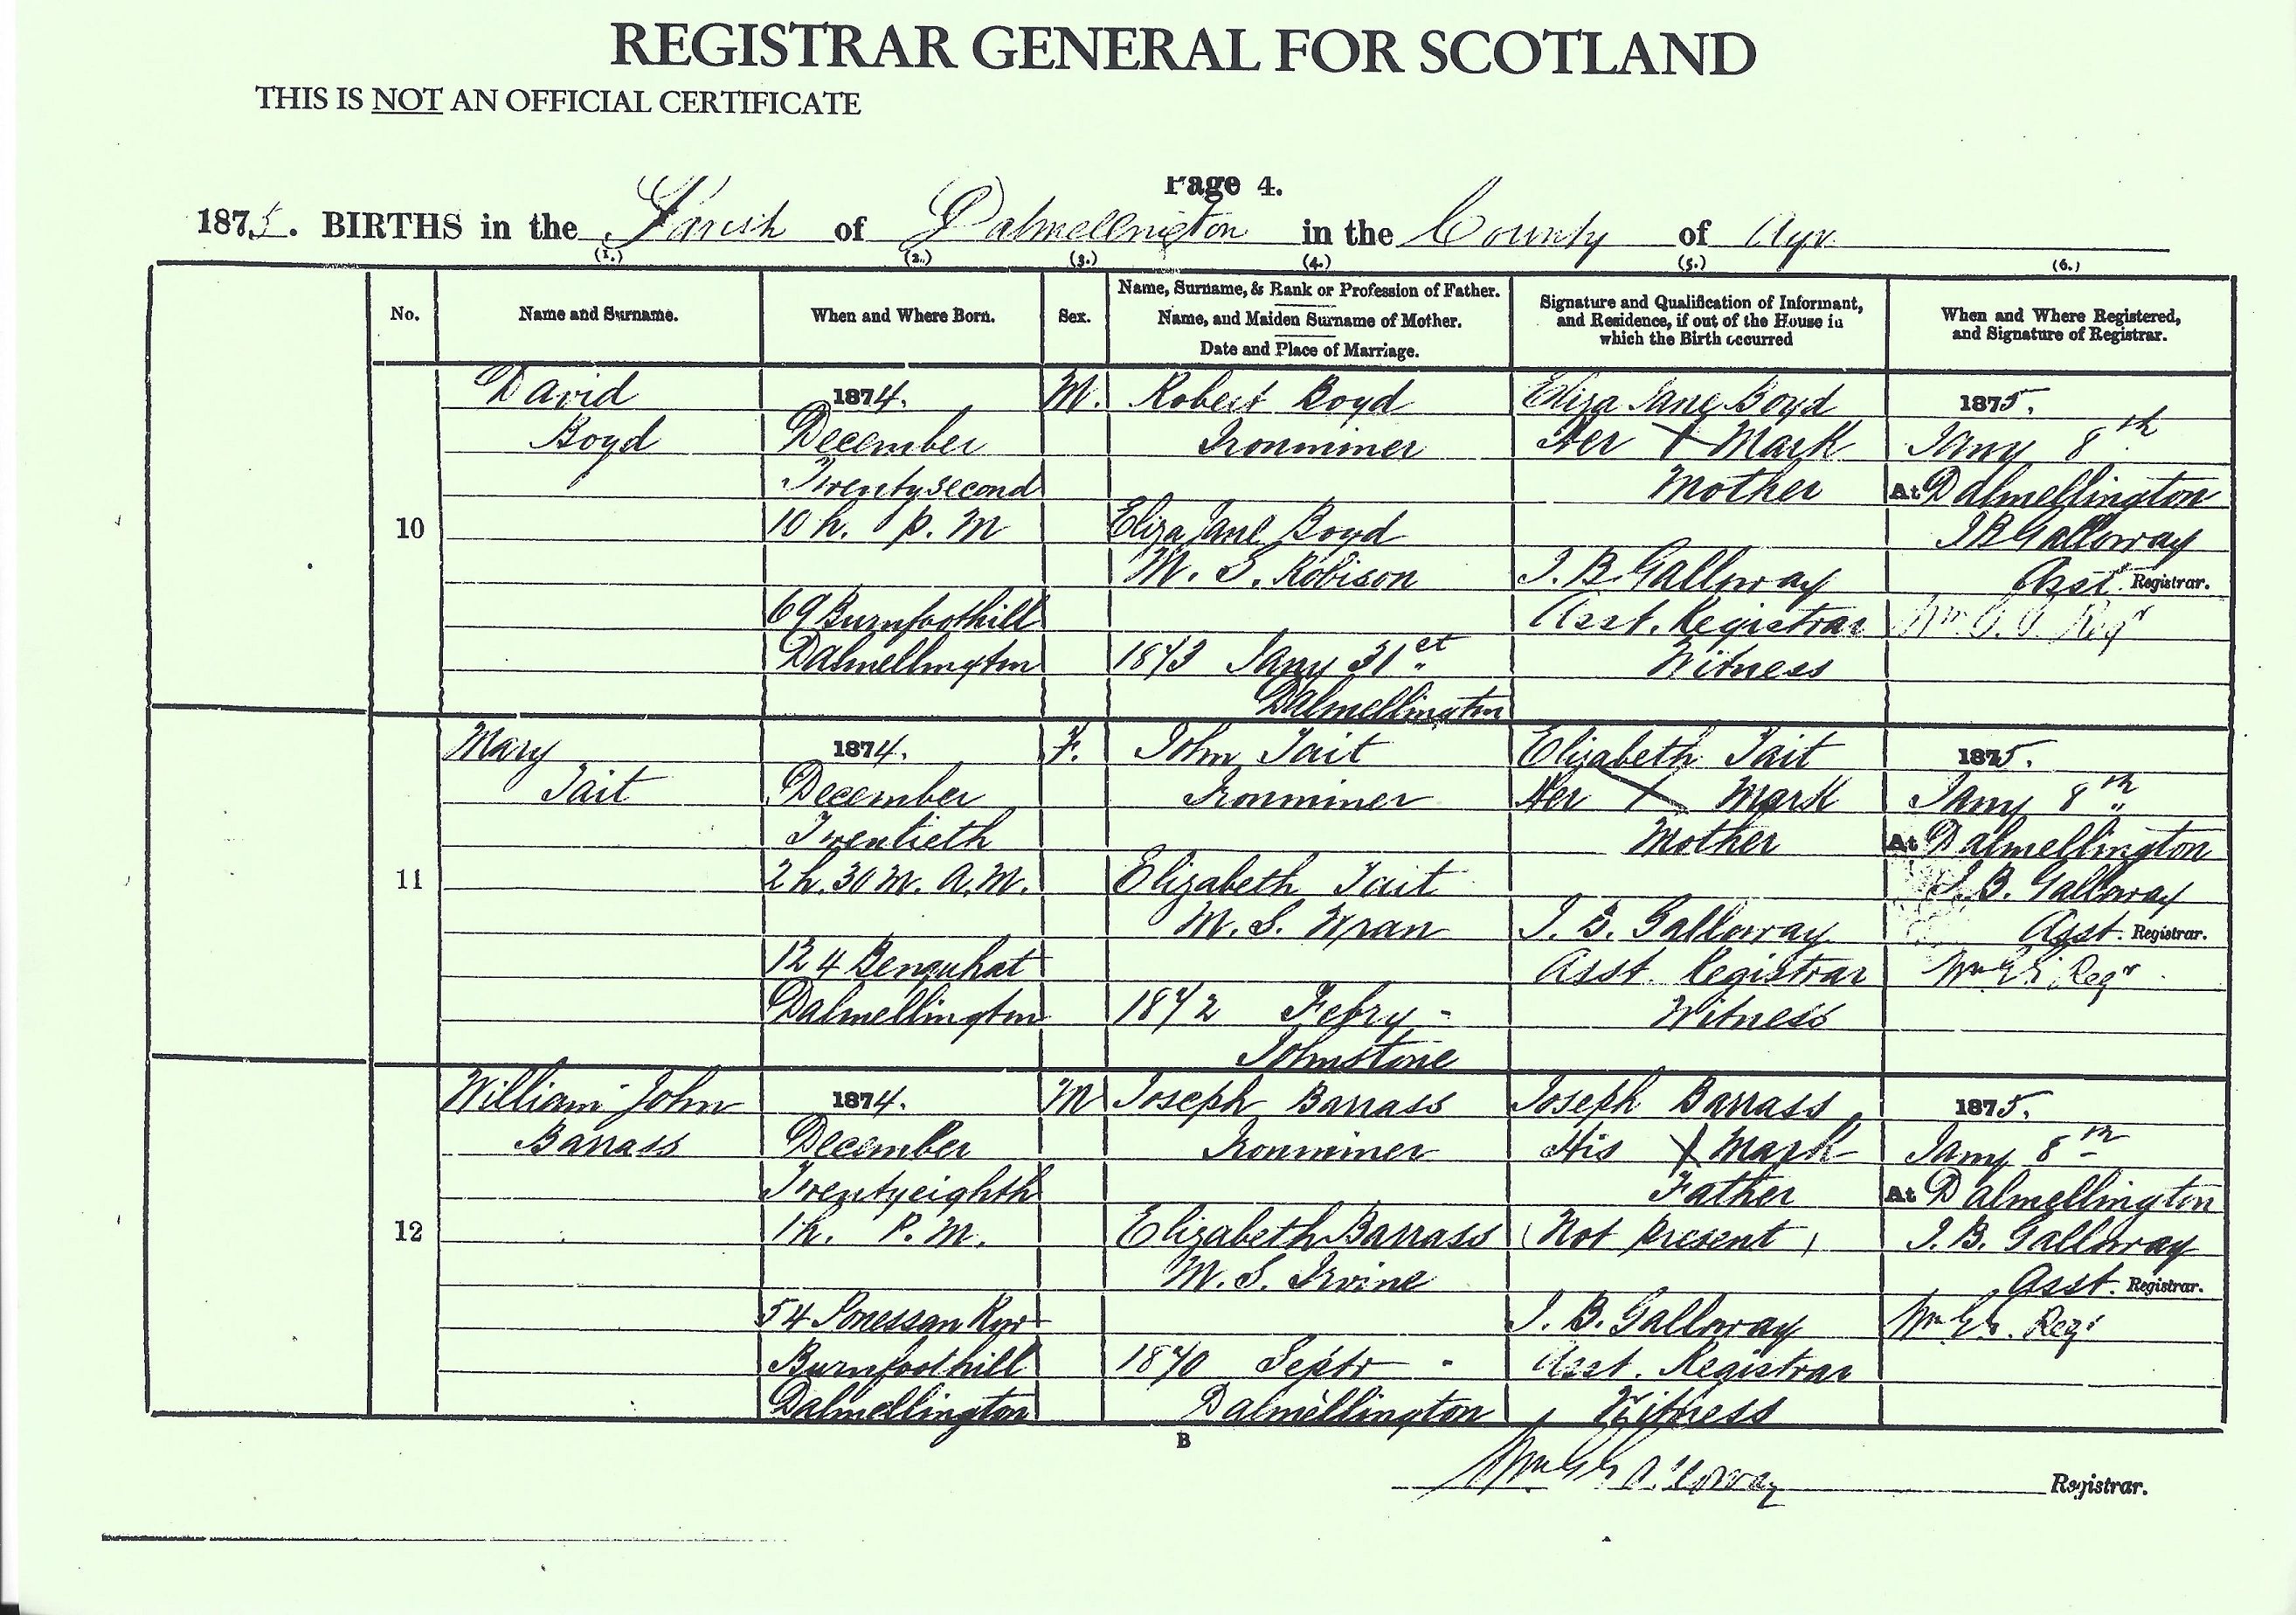 REGISTRAR GENERAL FOR SCOTLAND
THIS IS NOT AN OFFICIAL CERTIFICATE
Page 4.
1875. BIRTHS in the Parish of Dalmellington in the County of Ayr
(1.) (2.) (3.) (4.) (5.) (6.)
No.
Name and Surname.
When and Where Born.
Sex.
Name, Surname, & Rank or Profession of Father.
Name, and Maiden Surname of Mother.
Date and Place of Marriage.
Signature and Qualification of Informant,
and Residence, if out of the House in
which the Birth occurred
When and Where Registered,
and Signature of Registrar.
10
David
Boyd
1874.
December
Twentysecond
10 h. P. M
69 Burnfoothill
Dalmellington
M.
Robert Boyd
Ironminer
Eliza Jane Boyd
M. S. Robison
1873 Jany 31st
Dalmellington
Eliza Jane Boyd
Her X Mark
Mother
J. B. Galloway
Asst. Registrar
Witness
1875.
Jany 8th
At Dalmellington
J B Galloway
Asst. Registrar.
Wm G. G. Regr
11
Mary
Tait
1874.
December
Twentieth
2 h. 30 m. A. M.
124 Benquhat
Dalmellington
F.
John Tait
Ironminer
Elizabeth Tait
M. S. Wran
1872 Febry -
Johnstone
Elizabeth Tait
Her X Mark
Mother
J. B. Galloway
Asst. Registrar
Witness
1875.
Jany 8th
At Dalmellington
J. B. Galloway
Asst. Registrar.
Wm G. G. Regr
12
William John
Barrass
1874.
December
Twentyeighth
1 h. P. M.
54 Polnessan Row
Burnfoothill
Dalmellington
M
Joseph Barrass
Ironminer
Elizabeth Barrass
M. S. Irvine
1870 Septr -
Dalmellington
Joseph Barrass
His X Mark
Father
(Not present)
J. B. Galloway
Asst. Registrar
Witness
1875.
Jany 8th
At Dalmellington
J. B. Galloway
Asst. Registrar.
Wm G. G. Regr
B
Wm G G Galloway Registrar.